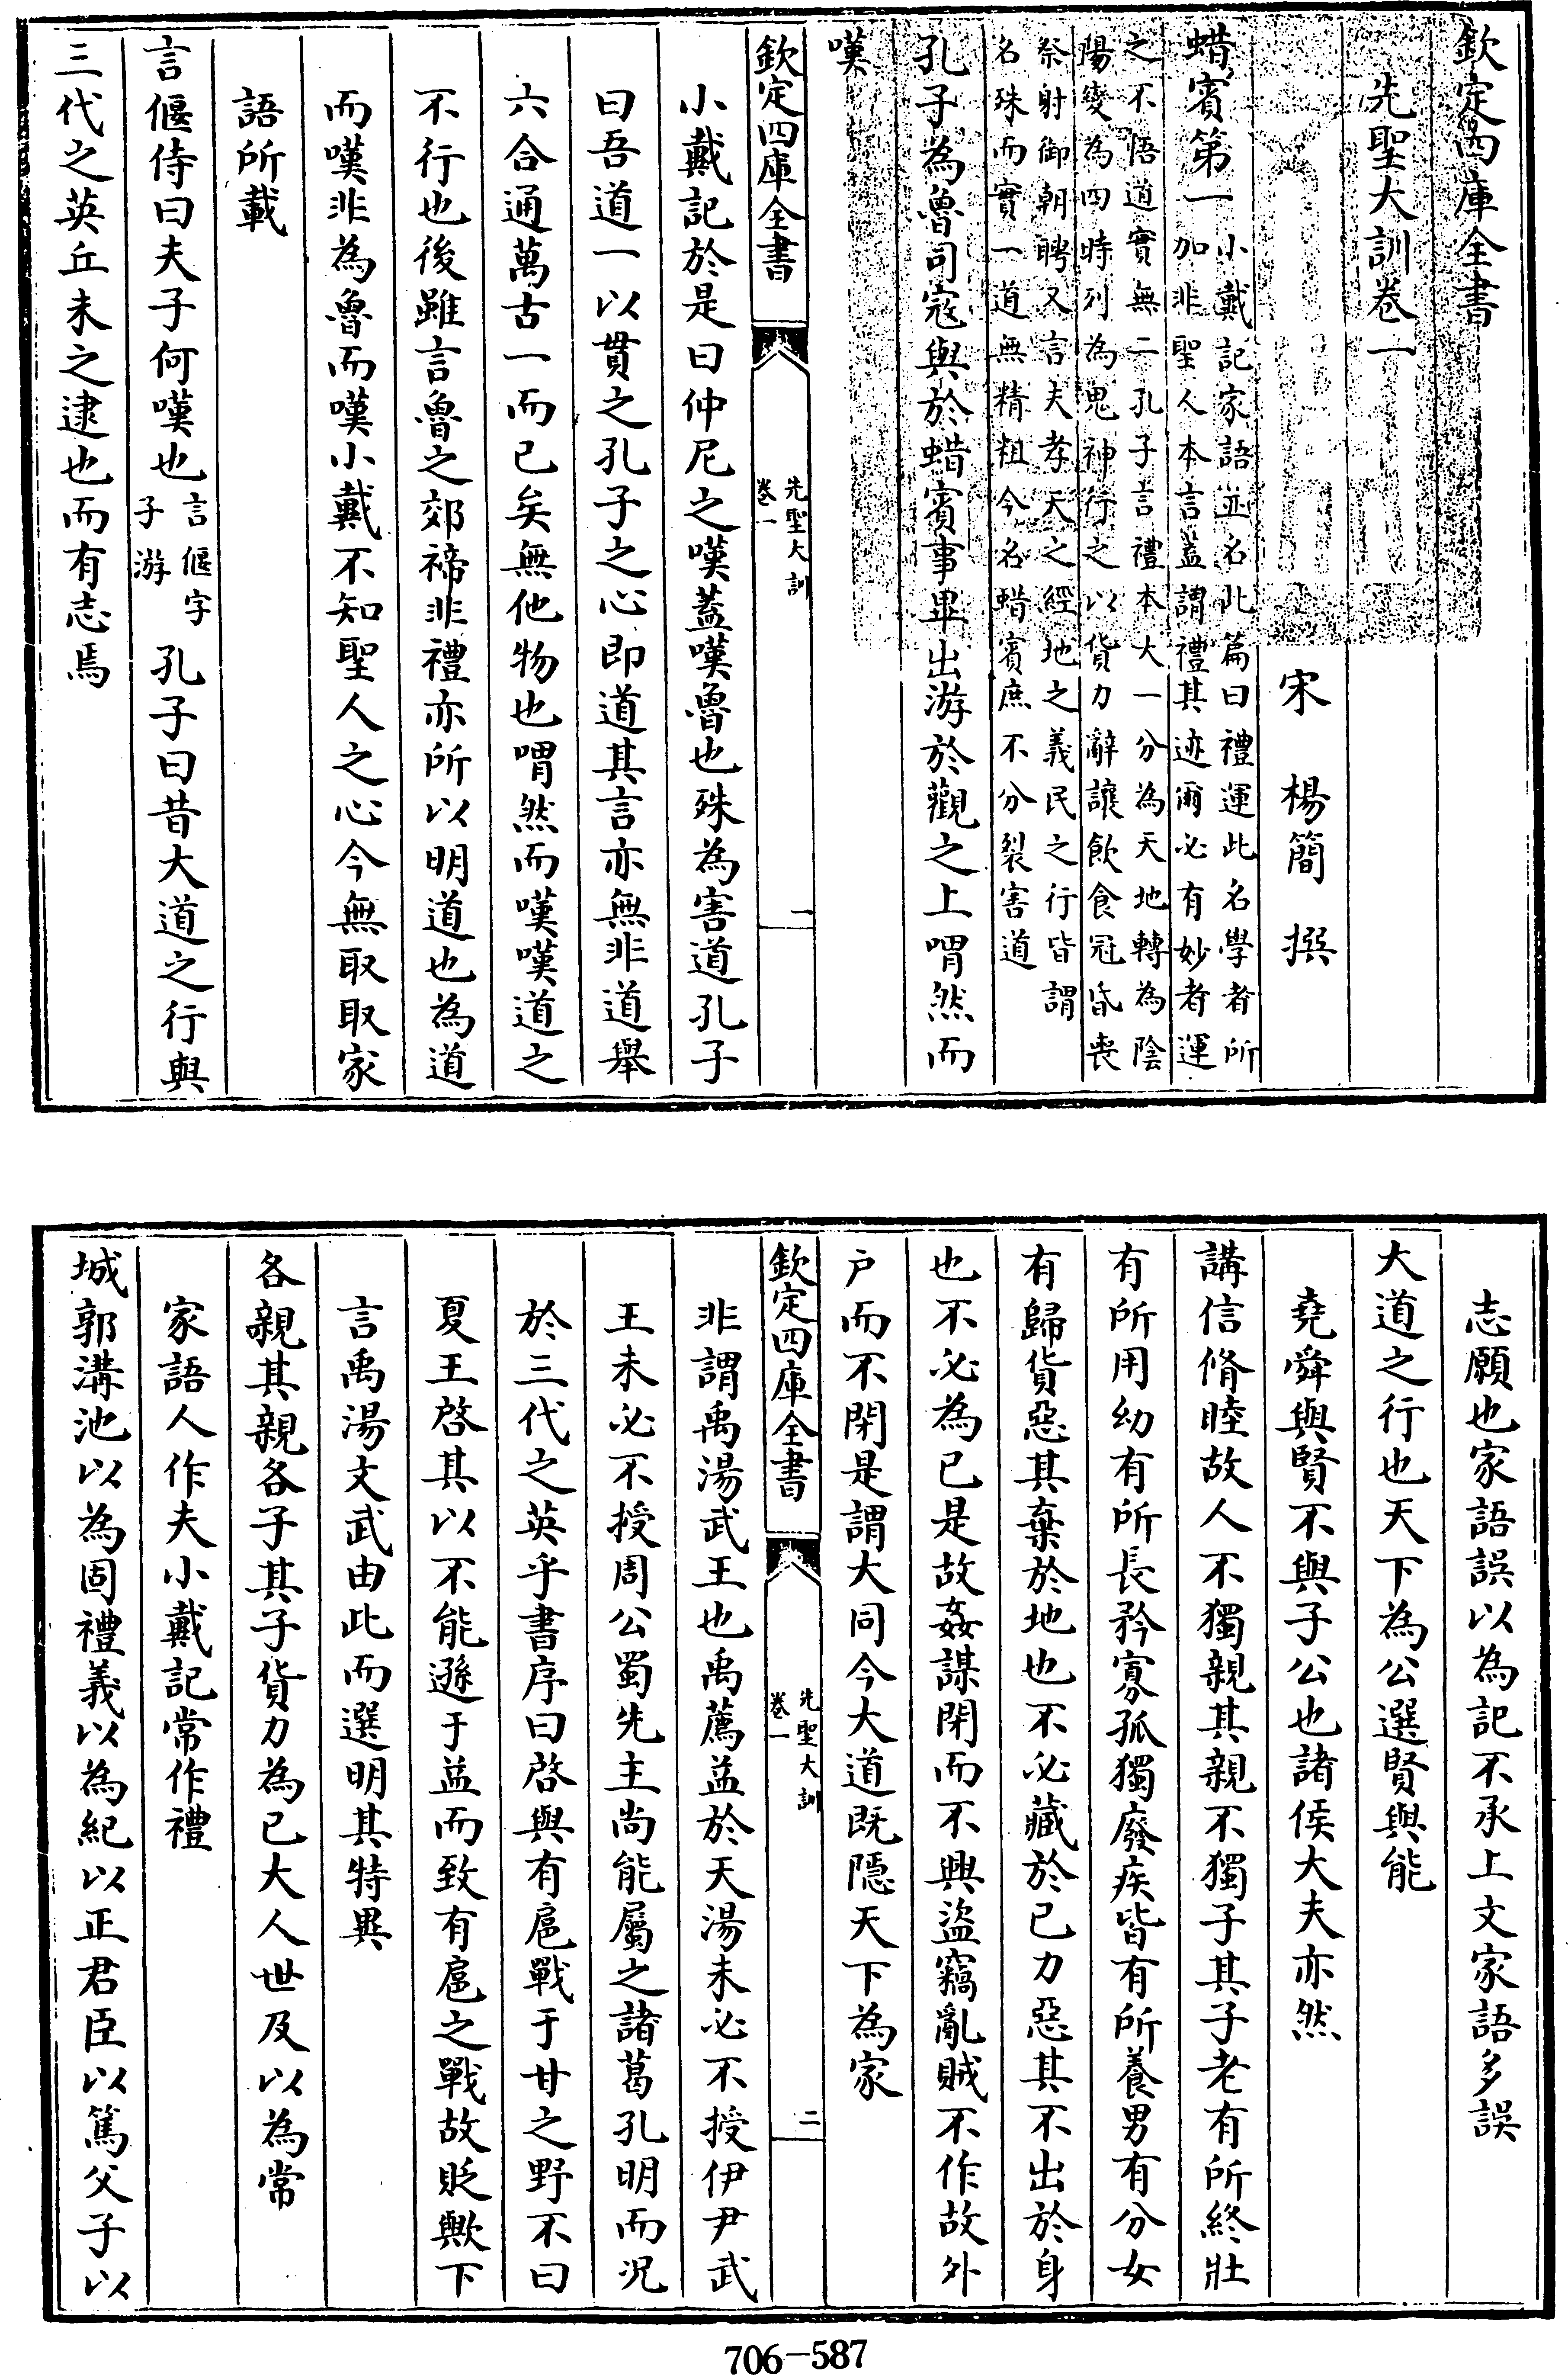 欽定四庫全書
先聖大訓卷一
宋　楊簡　撰
蜡賓第一
小戴記家語並名此篇曰禮運此名學者所
加非聖人本言蓋謂禮其迹爾必有妙者運
之不悟道實無二孔子言禮本大一分為天地轉為陰
陽變為四時列為鬼神行之以貨力辭讓飲食冠昏喪
祭射御朝聘又言夫孝天之經地之義民之行皆謂
名殊而實一道無精粗今名蜡賓庶不分裂害道
孔子為魯司寇與於蜡賓事畢出游於觀之上喟然而
嘆
欽定四庫全書
先聖大訓
卷一
一
小戴記於是曰仲尼之嘆蓋嘆魯也殊為害道孔子
曰吾道一以貫之孔子之心即道其言亦無非道舉
六合通萬古一而已矣無他物也喟然而嘆嘆道之
不行也後雖言魯之郊禘非禮亦所以明道也為道
而嘆非為魯而嘆小戴不知聖人之心今無取取家
語所載
言偃侍曰夫子何嘆也
言偃字
子游
孔子曰昔大道之行與
三代之英丘未之逮也而有志焉
志願也家語誤以為記不承上文家語多誤
大道之行也天下為公選賢與能
堯舜與賢不與子公也諸侯大夫亦然
講信脩睦故人不獨親其親不獨子其子老有所終壯
有所用幼有所長矜寡孤獨廢疾皆有所養男有分女
有歸貨惡其棄於地也不必藏於已力惡其不出於身
也不必為已是故姦謀閉而不興盜竊亂賊不作故外
户而不閉是謂大同今大道既隱天下為家
欽定四庫全書
先聖大訓
卷一
二
非謂禹湯武王也禹薦益於天湯未必不授伊尹武
王未必不授周公蜀先主尚能屬之諸葛孔明而况
於三代之英乎書序曰啓與有扈戰于甘之野不曰
夏王啓其以不能遜于益而致有扈之戰故貶歟下
言禹湯文武由此而選明其特異
各親其親各子其子貨力為已大人世及以為常
家語人作夫小戴記常作禮
城郭溝池以為固禮義以為紀以正君臣以篤父子以
706-587